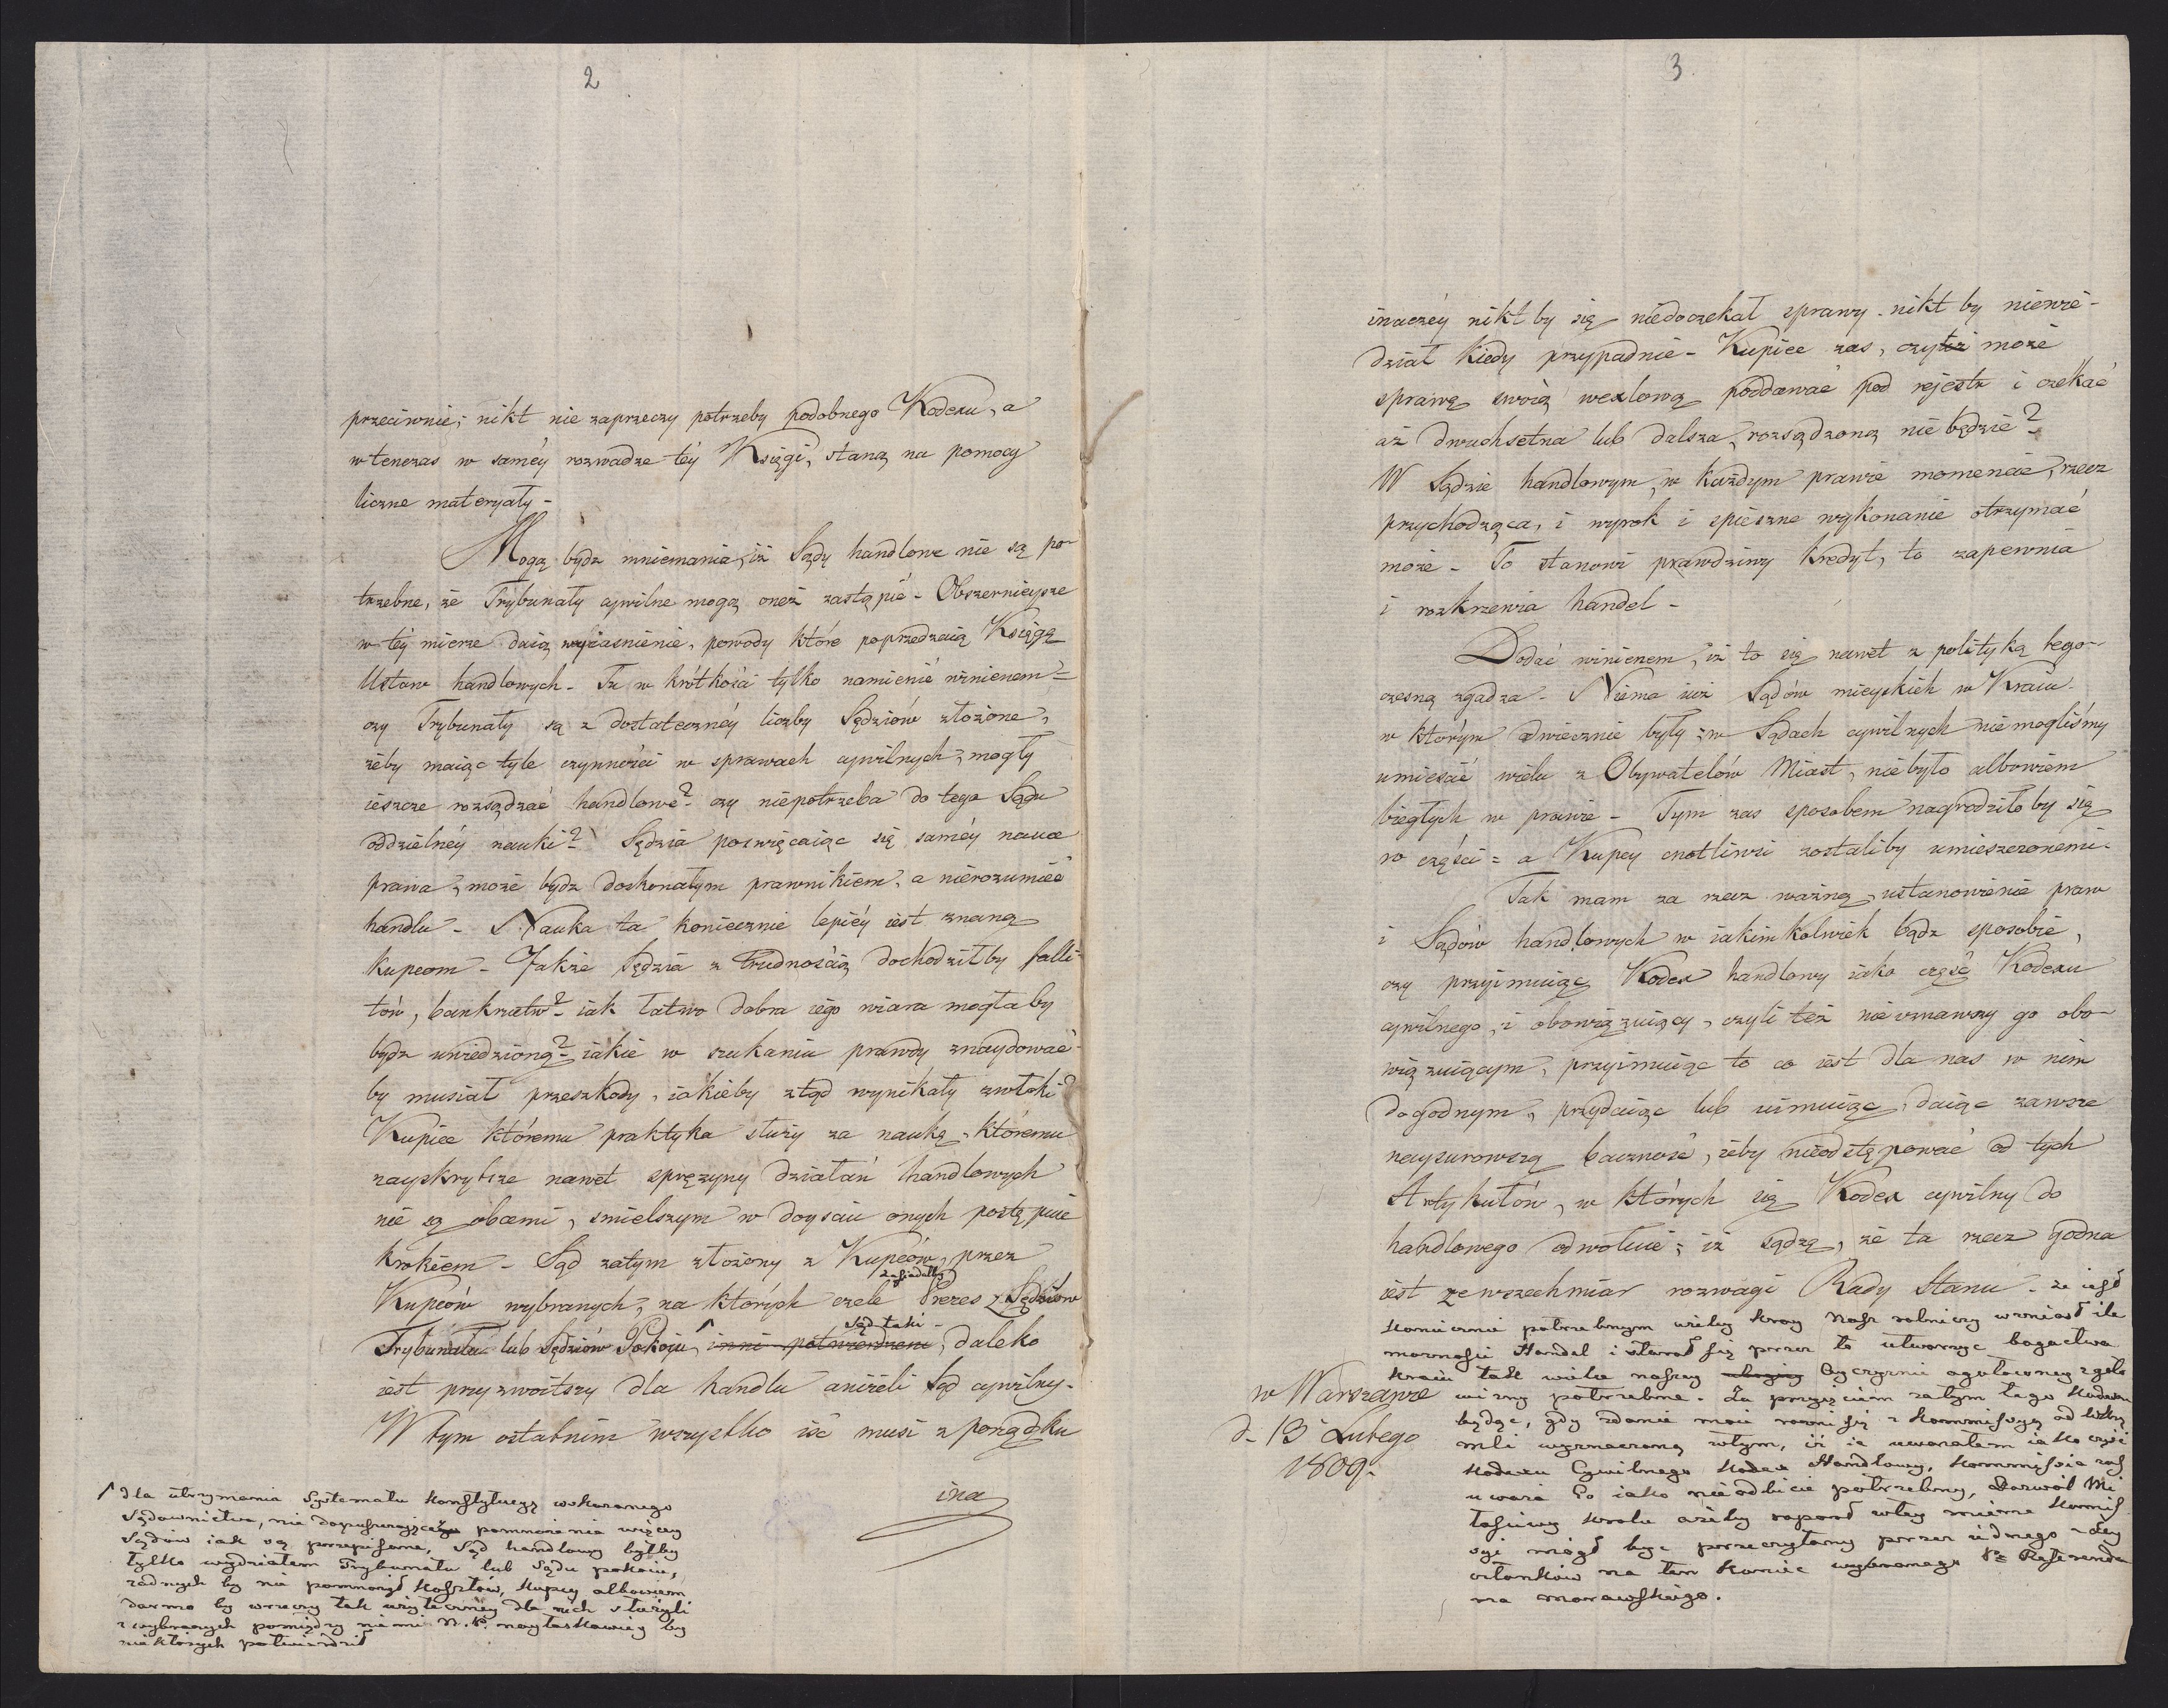 2
przeciwnie; nikt nie zaprzeczy potrzeby podobnego Kodexu, a
wtenczas w saméy rozwadze téy Księgi, staną na pomocy
liczne materyały -
Mogą bydz mniemania, iż Sądy handlowe nie są po-
trzebne, że Trybunały cywilne mogą oneż zastąpić - Obszernieysze
w téy mierze daią wyiasnienie, powody które poprzedzaią Księgę
Ustaw handlowych - Tu w krótkości tylko namienić winienem =
czy Trybunały są z dostatecznéy liczby Sędziów złożone,
żeby maiąc tyle czynności w sprawach cywilnych, mogły
ieszcze rozsądzać handlowe? - czy niepotrzeba do tego Sądu
oddzielnéy nauki? - Sędzia poswięcaiąc się saméy nauce
prawa, może bydz doskonałym prawnikiem, a nierozumieć
handlu - Nauka ta koniecznie lepiéy iest znaną
kupcom - Jakże Sędzia z trudnością dochodziłby falli-
tów, bankructw? - iak łatwo dobra iego wiara mogłaby
bydz uwiedzioną? - iakie w szukaniu prawdy znaydować-
by musiał przeszkody, iakieby ztąd wynikały zwłoki?
Kupiec któremu praktyka służy za naukę, któremu
nayskrytsze nawet sprężyny działań handlowych
nie są obcemi, smielszym w doyściu onych postępuie
krokiem - Sąd zatym złożony z Kupców, przez
zasiadałby
Kupców wybranych, na których czele Prezes z Sędziów
Sąd taki -
Trybunału lub Sędziów Pokoju, inni potwierdzeni, daleko
iest przyzwoitszy dla handlu aniżeli Sąd cywilny -
W tym ostatnim wszystko iść musi z porządku
ina
dla utrzymania Systematu Konstytucyą wskazanego
Sądownictwa, nie dopuszczaiącego pomnożenia więcey
Sądów iak są przepisane, Sąd handlowy byłby
tylko wydziałem Trybunału lub Sądu pokoiu,
żadnych by nie pomnożył kosztów, kupcy albowiem
darmo by w rzeczy tak użyteczney dla nich służyli
z wybranych pomiędzy niemi N. P. nayłaskawiey by
niektórych potwierdził
3
inaczéy nikt by się niedoczekał sprawy - nikt by niewie-
dział kiedy przypadnie - Kupiec zas, czyliż może
sprawę swoię wexlową poddawać pod rejestr i czekać
aż dwuchsetna lub dalsza, rozsądzoną nie będzie? -
W Sądzie handlowym, w każdym prawie momencie, rzecz
przychodząca, i wyrok i spieszne wykonanie otrzymać
może - To stanowi prawdziwy kredyt, to zapewnia
i rozkrzewia handel -
Dodać winienem, iż to się nawet z polityką tego-
czesną zgadza - Niema iuż Sądów mieyskich w Kraiu -
w którym odwiecznie były; w Sądach cywilnych niemogliśmy
umieścić wielu z Obywatelów Miast, niebyło albowiem
biegłych w prawie - Tym zas sposobem nagrodziłoby się
w części = a Kupcy cnotliwi zostaliby umieszczonemi -
Tak mam za rzecz ważną, ustanowienie praw
i Sądów handlowych w iakimkolwiek bądz sposobie,
czy przyimuiąc Kodex handlowy iako część Kodexu
cywilnego, i obowiązuiący, czyli też nieuznawszy go obo-
wiązuiącym, przyimuiąc to co iest dla nas w nim
dogodnym, przydaiąc lub uimuiąc, daiąc zawsze
naysurowszą baczność, żeby nieodstępować od tych
Artykułów, w których się Kodex cywilny do
handlowego odwołuie; iż sądzę, że ta rzecz godna
iest ze wszechmiar rozwagi Rady Stanu - że iest
koniecznie potrzebnym żeby kray nasz rolniczy wzniosł ile
możności Handel i starał się przez to utworzyć bogactwa
kraiu tak wielce naszey Oyczyznie ogołoconey z goto
wizny potrzebne. Za przyięciem zatym tego Kodexu
będąc, gdy zdanie moie rożni się z Kommissyą od
mli wyznaczoną w tym, iż ia uważałem iako część
Kodexu Cywilnego Kodex Handlowy, Kommissia zaś
uważa Go iako nieodbicie potrzebny, Dozwól Mi
łosciwy Krolu ażeby raport w tey mierze Kommis
syi mógł być przeczytany przez iednego z Jey
członków na ten koniec wybranego Pa Referenda
na Morawskiego.
w Warszawie
d. 13 Lutego
1809.